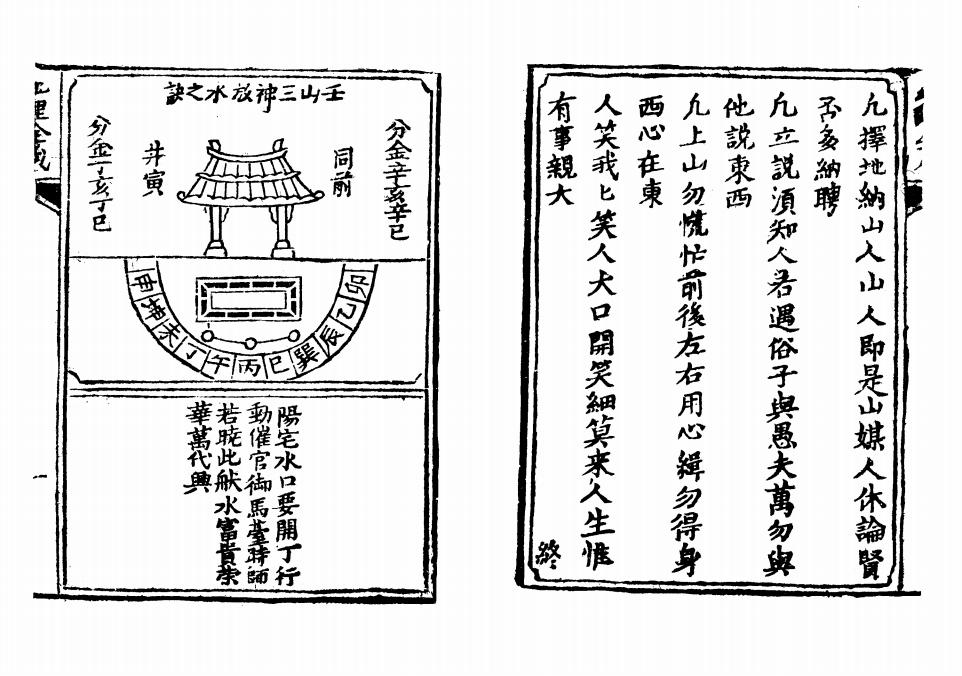 凢擇地納山人山人即是山媒人休論賢
否多納聘
凢立説須知人若遇俗子與愚夫萬勿與
他説東西
凢上山勿慌忙前後左右用心緝勿得身
西心在東
人笑我匕笑人大口開笑細莫来人生惟
有事親大
終
壬山三神放水之訣
分金辛亥辛巳
同前
井寅
分金丁亥丁巳
申坤未丁午丙巳巽辰乙卯
陽宅水口要開丁行
動催官御馬臺時師
若曉此般水富貴榮
華萬代興